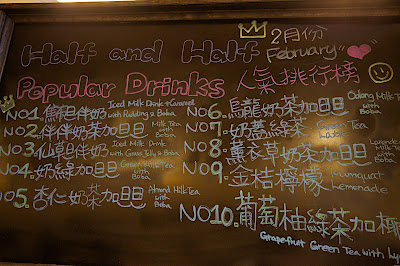 Half and Half
2月份
February
Popular Drinks
人氣排行榜
NO1. 焦糖伴奶 Iced Milk Drink + Caramel
with Pudding & Boba
NO2. 伴伴奶茶加
Milk Tea
with
Boba
NO3. 仙草伴奶 Iced Milk Drink
with Grass Jelly & Boba
NO4. 奶綠加
Green Milk Tea
with
Boba
NO5. 杏仁奶茶加
Almond Milk Tea
with
Boba
NO6. 烏龍奶茶加
Oolong Milk Tea
with
Boba
NO7. 奶蓋綠茶 Green Tea
NO8. 薰衣草奶茶加
Lavender
Milk Tea
with
Boba
NO9. 金桔檸檬
Kumquat
Lemonade
NO10. 葡萄柚綠茶加椰
Grapefruit Green Tea with